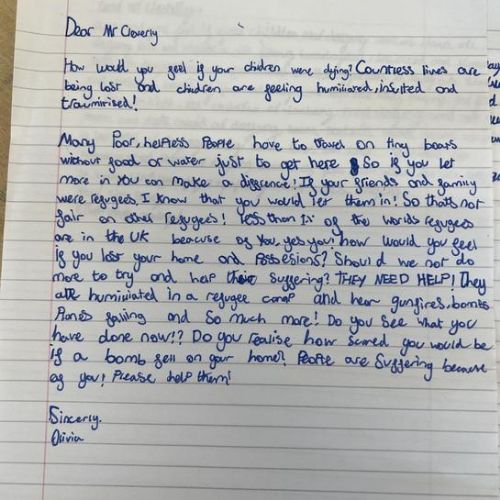 Dear Mr Cleverly
How would you feel if your children were dying? Countless lives are
being lost and children are feeling humiliated, insulted and
traumirised!
Many Poor, helpless People have to travel on tiny boats
without food or water just to get here So if you let
more in you can make a difference! If your friends and family
were refugees, I know that you would let them in! So thats not
fair on other refugees! less than 1% of the worlds refugees
are in the UK because of you, yes you! how would you feel
if you lost your home and Possesions? Should we not do
more to try and help their suffering? THEY NEED HELP! They
are humiliated in a refugee camp and hear gunfires, bombs
Planes falling and so much more! Do you see what you
have done now!? Do you realise how scared you would be
if a bomb fell on your home? People are suffering because
of you! Please help them!
Sincerly,
Olivia